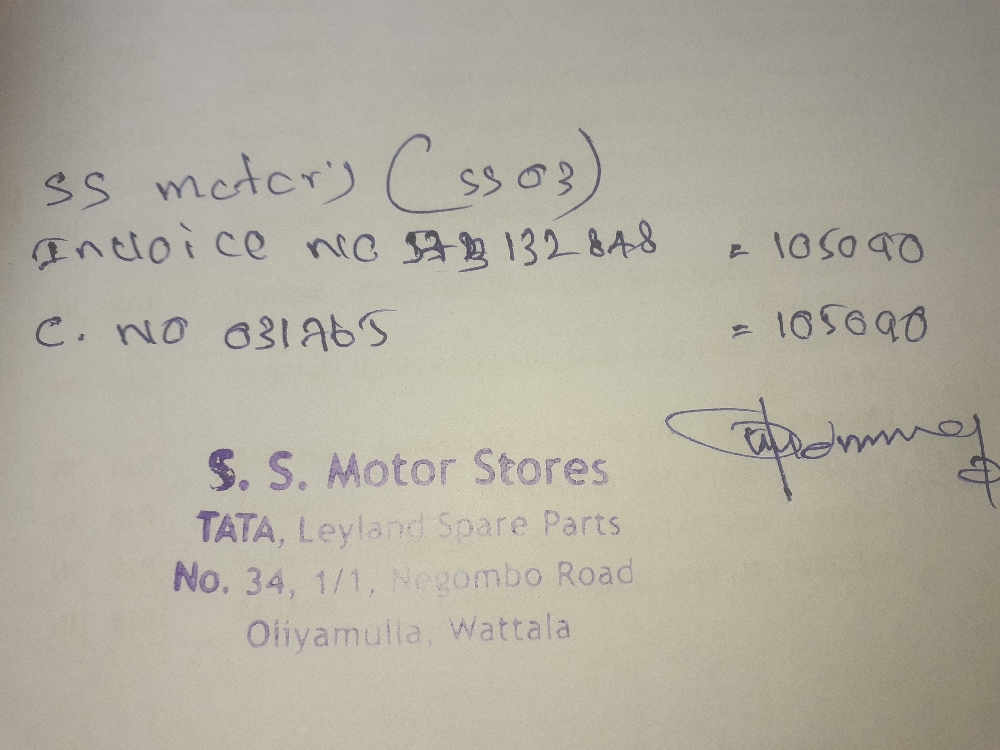 SS motors (SS 03)
Invoice no 132848 = 105090
C. NO 031765 = 105090
S. S. Motor Stores
TATA, Leyland Spare Parts
No. 34, 1/1, Negombo Road
Oliyamulla, Wattala